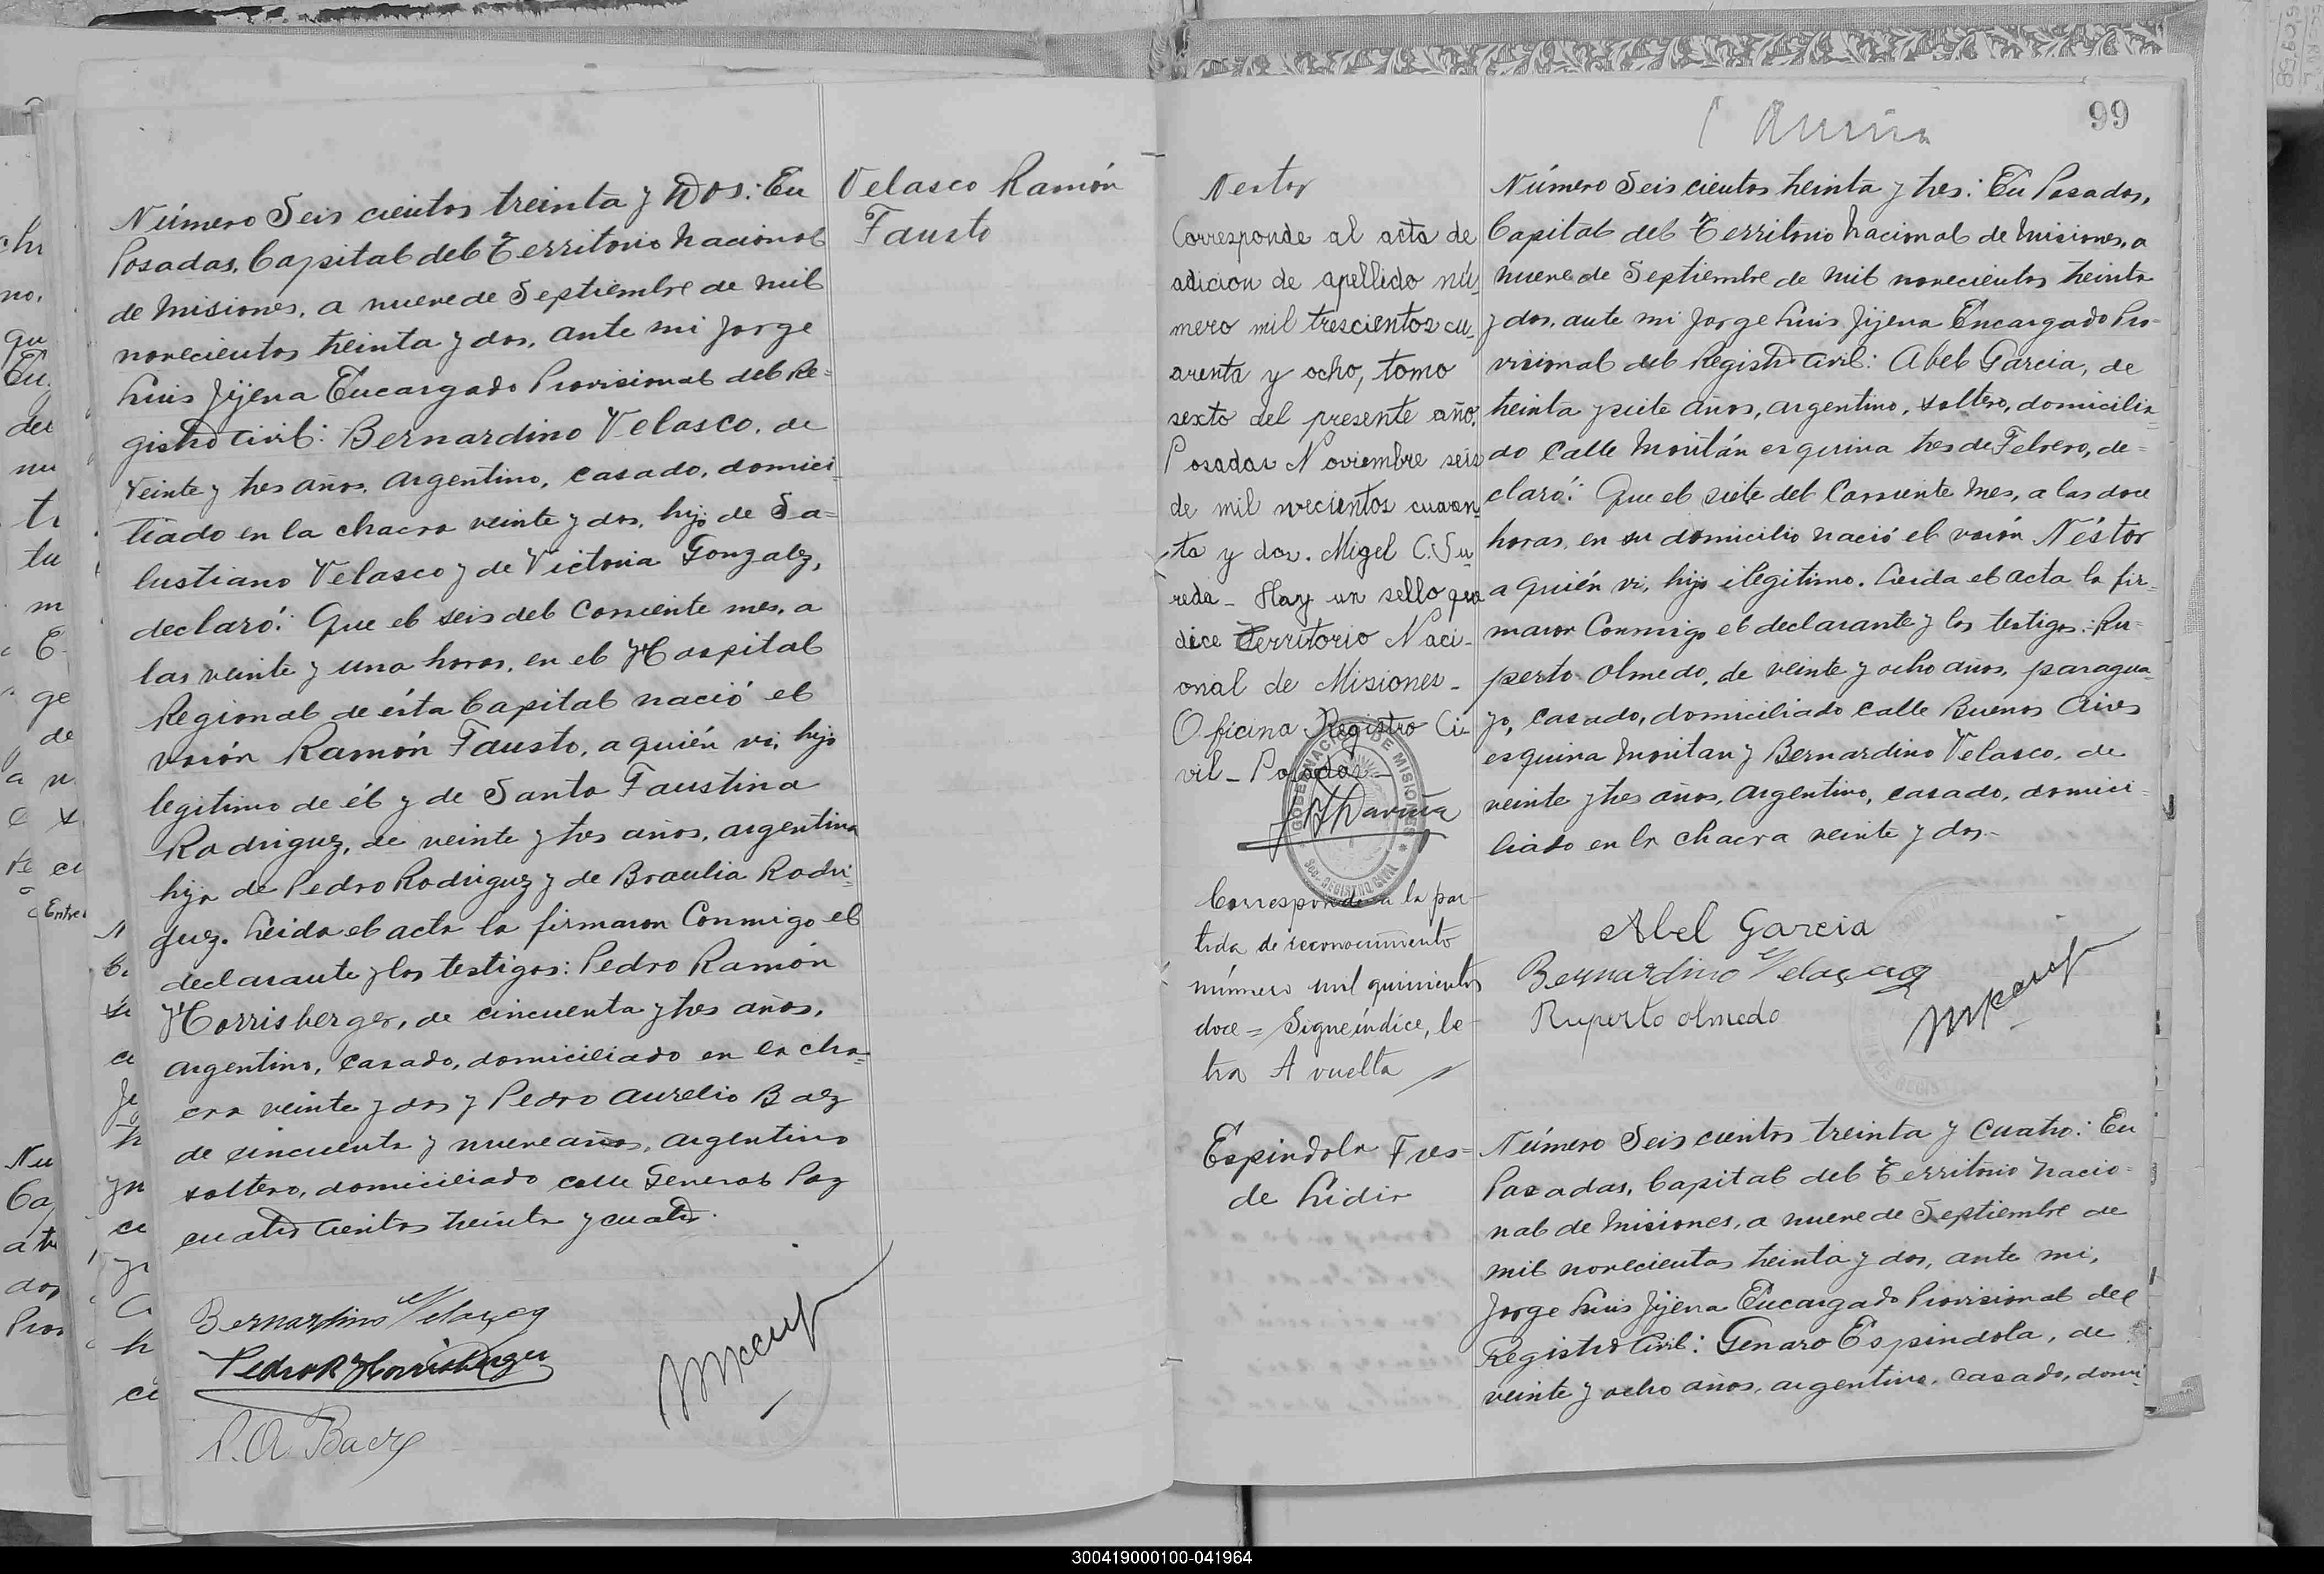 Número Seis cientos treinta y Dos: En
Posadas, Capital del Territorio Nacional
de Misiones, a nueve de Septiembre de mil
novecientos treinta y dos, ante mi Jorge
Luis Jijena Encargado Provisional del Re=
gistro Civil: Bernardino Velasco, de
veinte y tres años, argentino, casado, domici
liado en la chacra veinte y dos, hijo de Sa=
lustiano Velasco y de Victoria Gonzalez,
declaró: Que el seis del corriente mes, a
las veinte y una horas, en el Hospital
Regional de ésta Capital nació el
varón Ramón Fausto, a quién vi, hijo
legitimo de él y de Santa Faustina
Rodriguez, de veinte y tres años, argentina
hija de Pedro Rodriguez y de Braulia Rodri=
guez. Leida el acta la firmaron Conmigo el
declarante y los testigos: Pedro Ramón
Horrisberger, de cincuenta y tres años,
argentino, casado, domiciliado en la cha=
cra veinte y dos y Pedro Aurelio Baez
de cincuenta y nueve años, argentino
soltero, domiciliado calle General Paz
cuatro cientos treinta y cuatro.
Bernardino Velasco
Pedro R Horrisberger
P. A. Baez
Velasco Ramón
Fausto
99
Nestor
Corresponde al acta de
adicion de apellido nú-
mero mil trescientos cu-
arenta y ocho, tomo
sexto del presente año.
Posadas Noviembre seis
de mil novecientos cuaren-
ta y dos. Migel C. Su
reda - Hay un sello que
dice Territorio Naci-
onal de Misiones -
Oficina Registro Ci-
vil - Posadas -
GOBERNACION DE MISIONES
REGISTRO CIVIL
Corresponde a la par-
tida de reconocimiento
número mil quinientos
doce = Sigue índice, le-
tra A vuelta
Número Seis cientos treinta y tres: En Posadas,
Capital del Territorio Nacional de Misiones, a
nueve de Septiembre de mil novecientos treinta
y dos, ante mi Jorge Luis Jijena Encargado Pro-
visional del Registro Civil: Abel Garcia, de
treinta y siete años, argentino, soltero, domicilia
do Calle Moritán esquina tres de Febrero, de=
claró: Que el siete del Corriente mes, a las doce
horas, en su domicilio nació el varón Néstor
a quién vi, hijo ilegitimo. Leida el acta la fir-
maron Conmigo el declarante y los testigos: Ru=
perto Olmedo, de veinte y ocho años, paragua
yo, casado, domiciliado calle Buenos Aires
esquina Moritan y Bernardino Velasco, de
veinte y tres años, argentino, casado, domici-
liado en la chacra veinte y dos.-
Abel Garcia
Bernardino Velasco
Ruperto Olmedo
Espindola Fres=
de Lidia
Número Seis cientos treinta y cuatro: En
Posadas, Capital del Territorio Nacio=
nal de Misiones, a nueve de Septiembre de
mil novecientos treinta y dos, ante mi,
Jorge Luis Jijena Encargado Provisional del
Registro Civil: Genaro Espindola, de
veinte y ocho años, argentino, casado, domi-
300419000100-041964